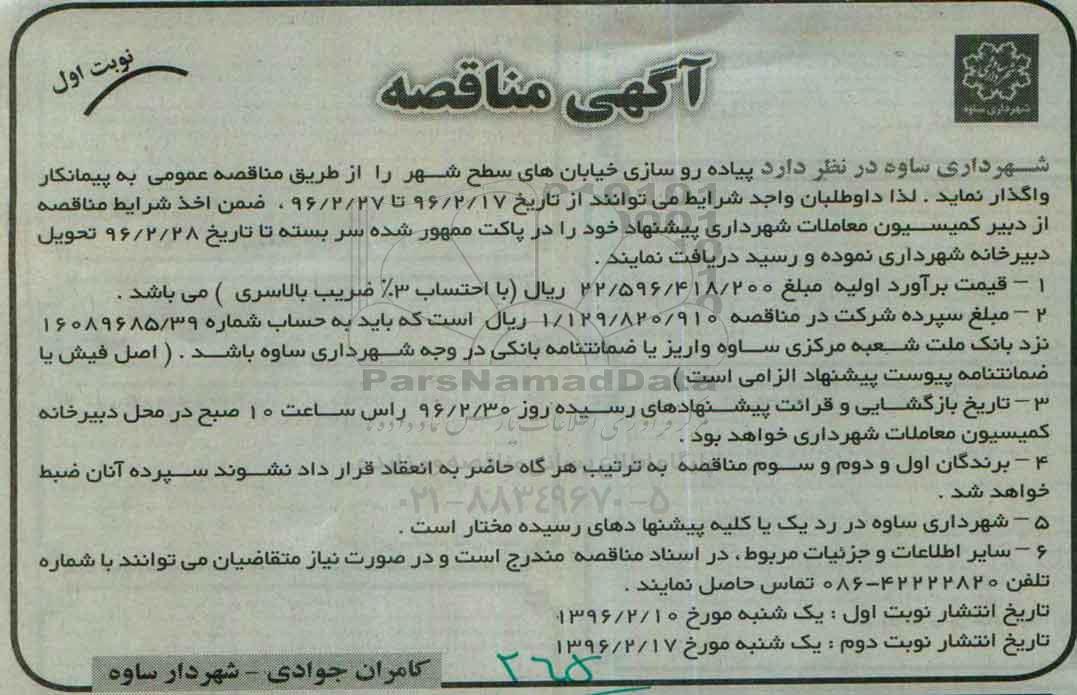 شهرداری ساوه
آگهی مناقصه
نوبت اول
شهرداری ساوه در نظر دارد پیاده رو سازی خیابان های سطح شهر را از طریق مناقصه عمومی به پیمانکار
واگذار نماید . لذا داوطلبان واجد شرایط می توانند از تاریخ ۹۶/۲/۱۷ تا ۹۶/۲/۲۷ ، ضمن اخذ شرایط مناقصه
از دبیر کمیسیون معاملات شهرداری پیشنهاد خود را در پاکت ممهور شده سر بسته تا تاریخ ۹۶/۲/۲۸ تحویل
دبیرخانه شهرداری نموده و رسید دریافت نمایند .
۱ – قیمت برآورد اولیه مبلغ ۲۲/۵۹۶/۴۱۸/۲۰۰ ریال (با احتساب ۳٪ ضریب بالاسری ) می باشد .
۲ – مبلغ سپرده شرکت در مناقصه ۱/۱۲۹/۸۲۰/۹۱۰ ریال است که باید به حساب شماره ۱۶۰۸۹۶۸۵/۳۹
نزد بانک ملت شعبه مرکزی ساوه واریز یا ضمانتنامه بانکی در وجه شهرداری ساوه باشد . ( اصل فیش یا
ضمانتنامه پیوست پیشنهاد الزامی است )
ParsNamadData
۳ – تاریخ بازگشایی و قرائت پیشنهادهای رسیده روز ۹۶/۲/۳۰ راس ساعت ۱۰ صبح در محل دبیرخانه
کمیسیون معاملات شهرداری خواهد بود .
۴ – برندگان اول و دوم و سوم مناقصه به ترتیب هر گاه حاضر به انعقاد قرار داد نشوند سپرده آنان ضبط
خواهد شد .
۰۲۱-۸۸۳۴۹۶۷۰-۵
۵ – شهرداری ساوه در رد یک یا کلیه پیشنها دهای رسیده مختار است .
۶ – سایر اطلاعات و جزئیات مربوط، در اسناد مناقصه مندرج است و در صورت نیاز متقاضیان می توانند با شماره
تلفن ۴۲۲۲۲۸۲۰-۰۸۶ تماس حاصل نمایند .
تاریخ انتشار نوبت اول : یک شنبه مورخ ۱۳۹۶/۲/۱۰
تاریخ انتشار نوبت دوم : یک شنبه مورخ ۱۳۹۶/۲/۱۷
کامران جوادی - شهردار ساوه
۲۶۵